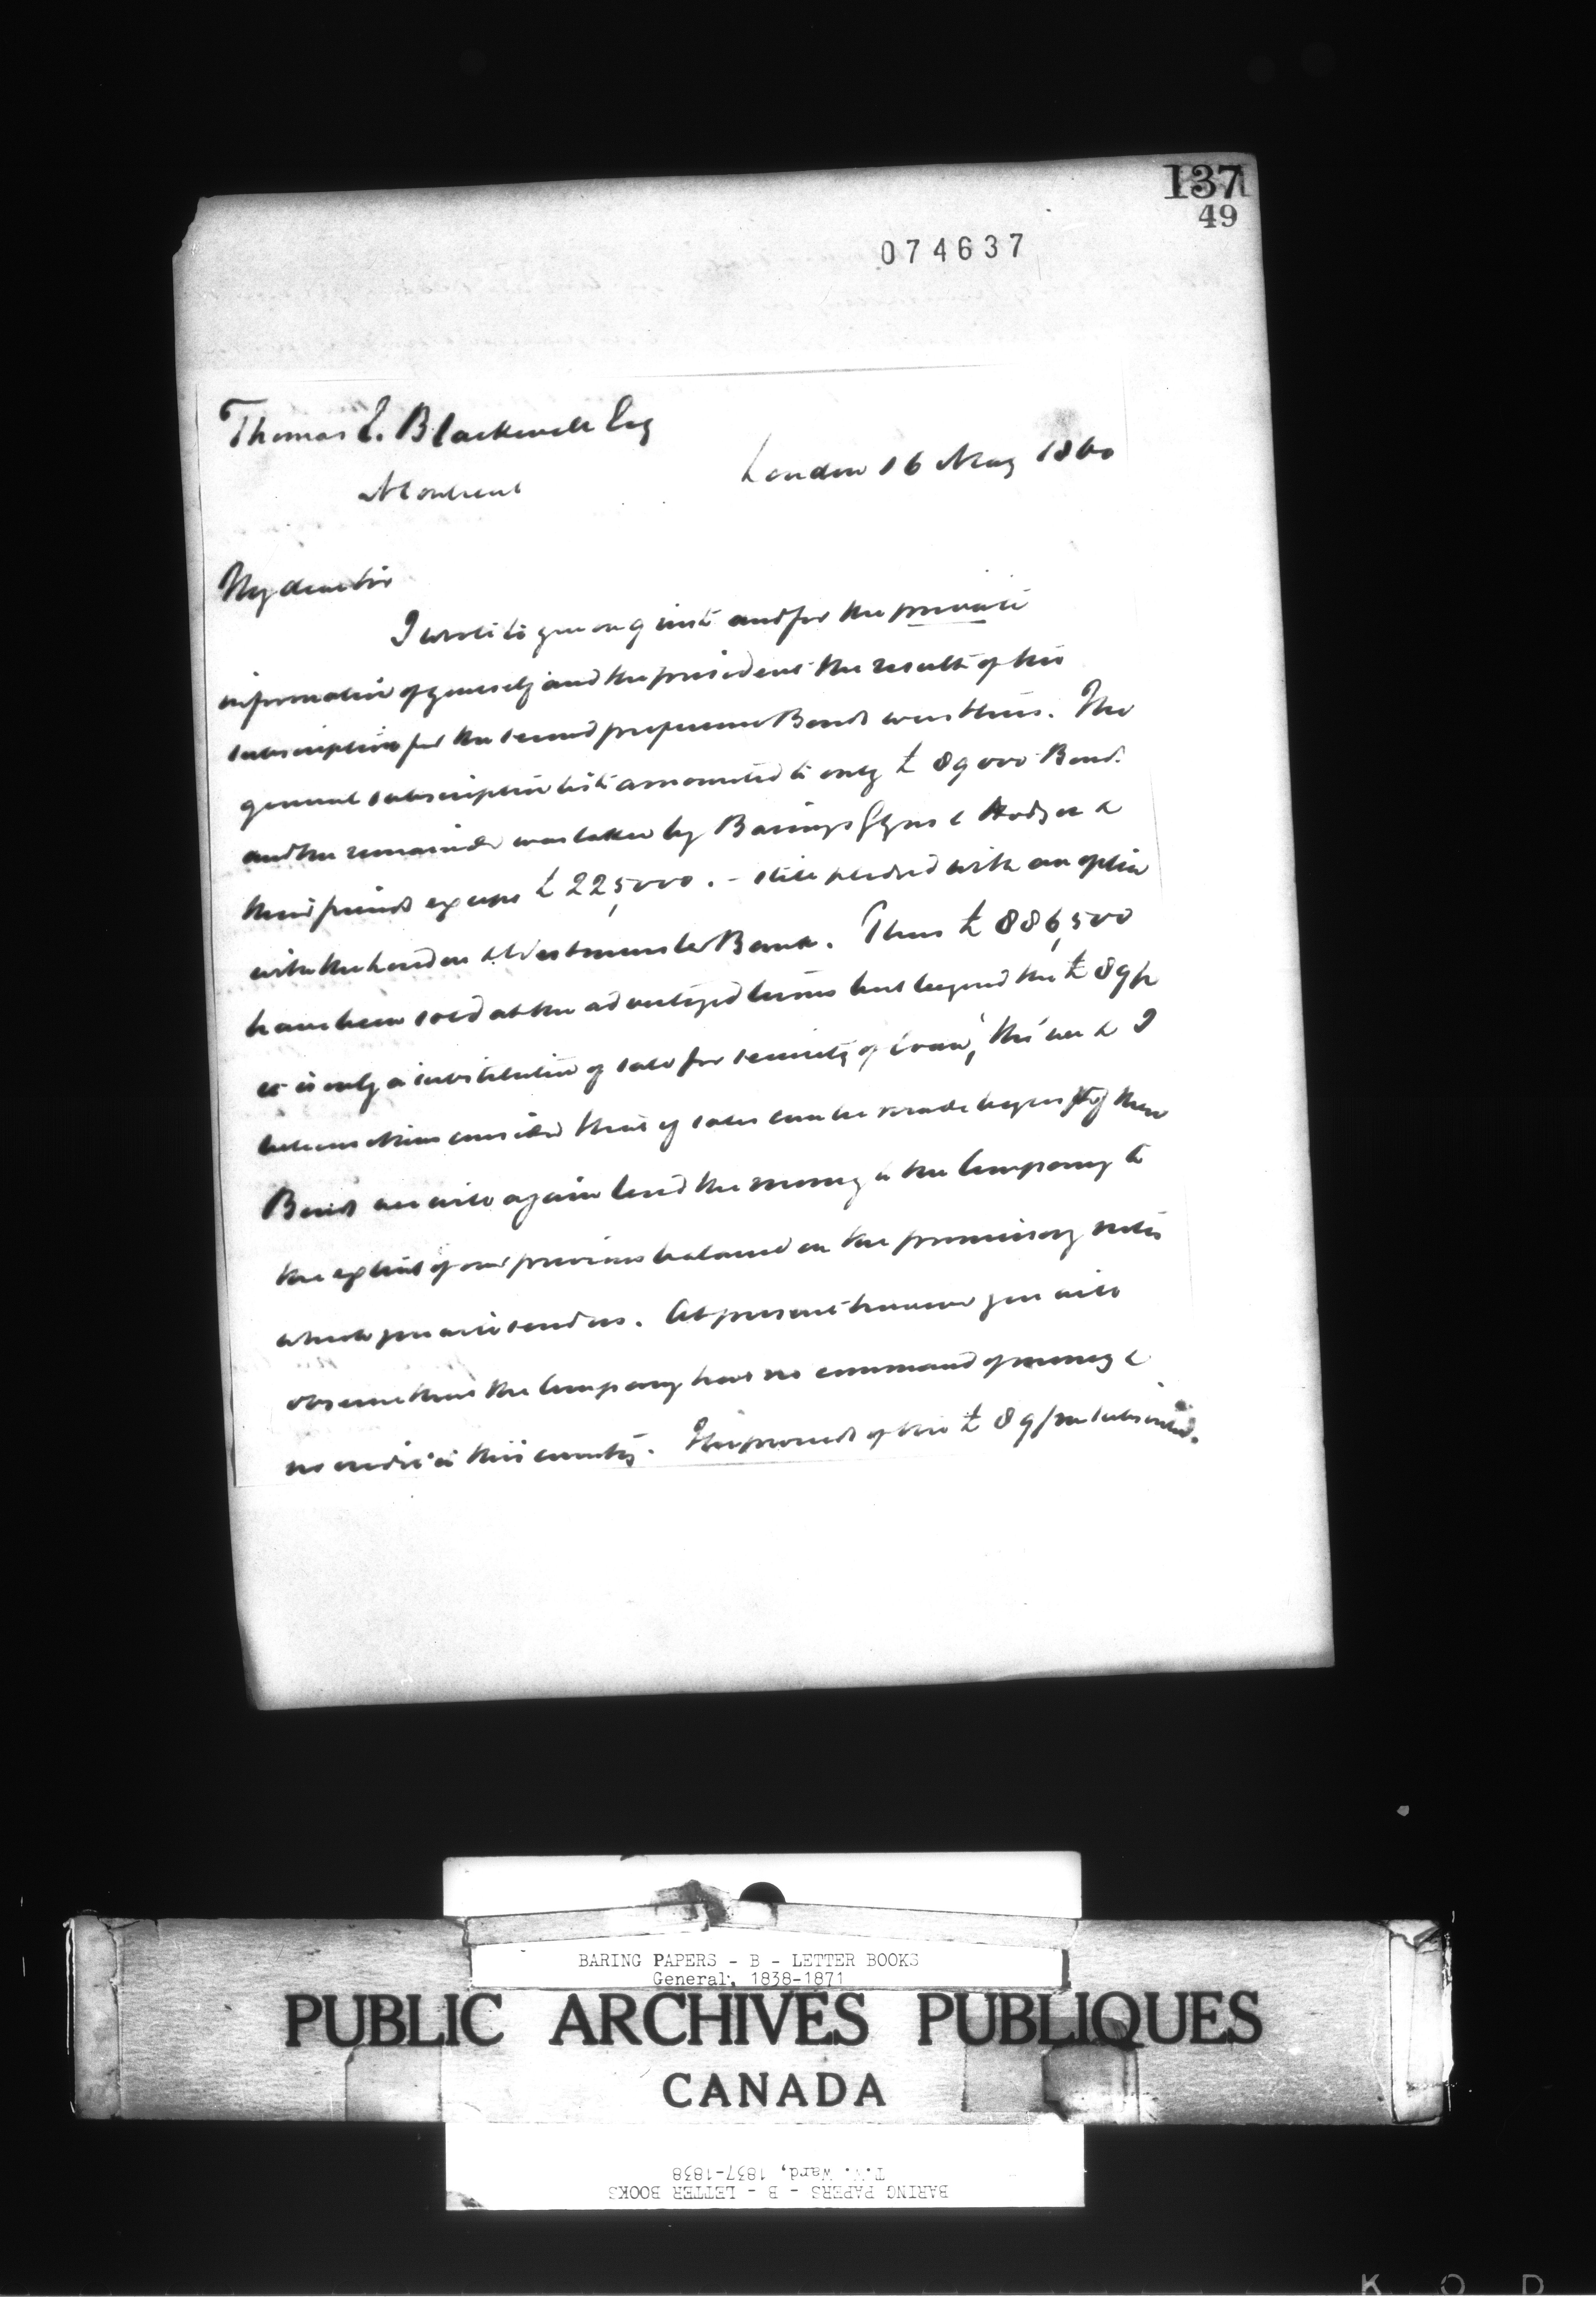 137
49
074637
Thomas E. Blackwell Esq
Montreal
London 16 May 1860
My dear Sir
I wrote to you on 9 inst and for the private
information of yourself and the president the result of the
subscription for the second preference Bonds was thus. The
general subscription list amounted to only £ 89000 Bond.
and the remainder was taken by Barings Glyns & Hodgson &
their friends except £ 225,000. - still pledged with an option
with the London & Westminster Bank. Thus £ 886,500
have been sold at the advertized terms but beyond the £ 89/m
it is only a substitution of sale for security of loan, this we & I
between them consider that if sales can be made by us of these
Bonds we will again lend the money to the Company to
the extent of our previous balance on the promissory notes
which you will send us. At present however you will
observe that the Company have no command of money &
no credit in this country. The proceeds of the £ 89/m subscribed.
BARING PAPERS - B - LETTER BOOKS
General, 1838-1871
PUBLIC ARCHIVES PUBLIQUES
CANADA
T.W. Ward, 1837-1838
BARING PAPERS - B - LETTER BOOKS
K O D